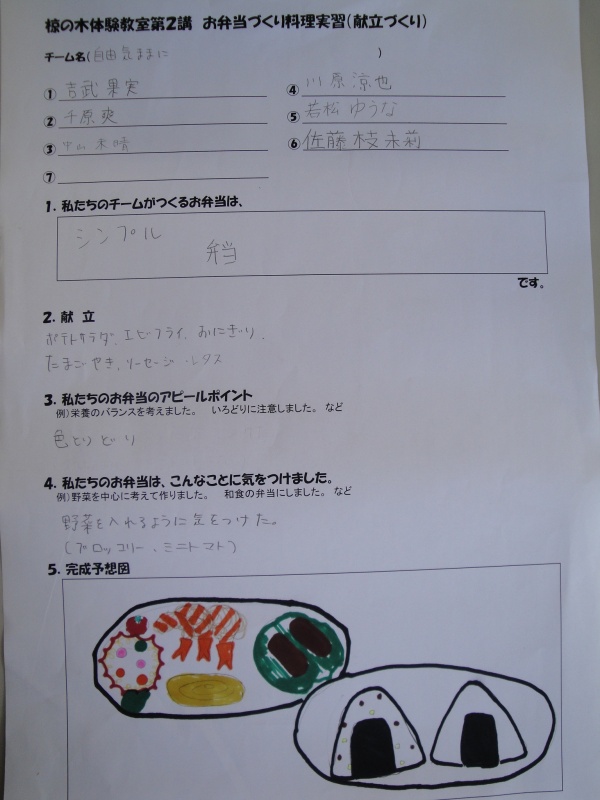 椋の木体験教室第2講 お弁当づくり料理実習(献立づくり)
チーム名(自由気ままに)
① 吉武果実
② 千原爽
③ 中山未晴
④ 川原涼也
⑤ 若松ゆうな
⑥ 佐藤枝未莉
⑦
1. 私たちのチームがつくるお弁当は、
シンプル
弁当
です。
2. 献 立
ポテトサラダ、エビフライ、おにぎり、
たまごやき、ソーセージ、レタス
3. 私たちのお弁当のアピールポイント
例)栄養のバランスを考えました。 いろどりに注意しました。 など
色とりどり
4. 私たちのお弁当は、こんなことに気をつけました。
例)野菜を中心に考えて作りました。 和食の弁当にしました。 など
野菜を入れるように気をつけた。
(ブロッコリー、ミニトマト)
5. 完成予想図